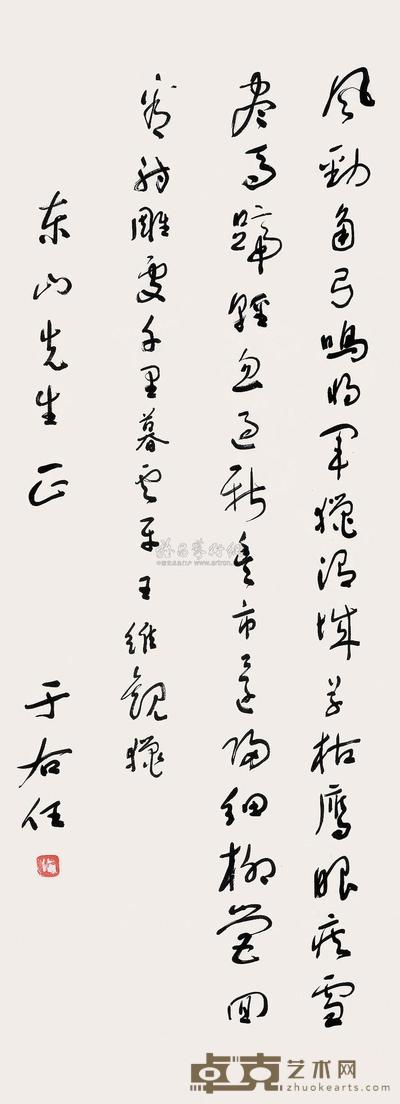 風勁角弓鳴将軍獵渭城草枯鷹眼疾雪
盡馬蹄輕忽過新豐市還歸細柳營回
看射雕處千里暮雲平王維觀獵
东山先生正
于右任
www.artron.net
卓克艺术网
zhuokearts.com